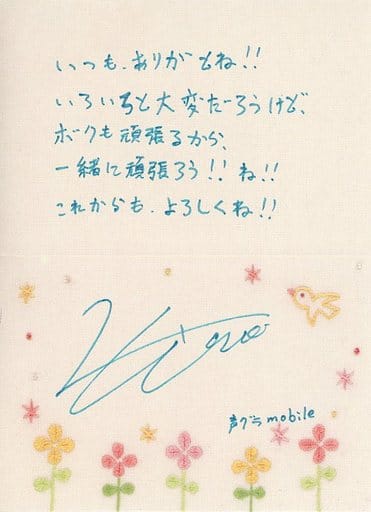 いつも、ありがとね!!
いろいろと大変だろうけど、
ボクも頑張るから、
一緒に頑張ろう!! ね!!
これからも、よろしくね!!
声グラmobile